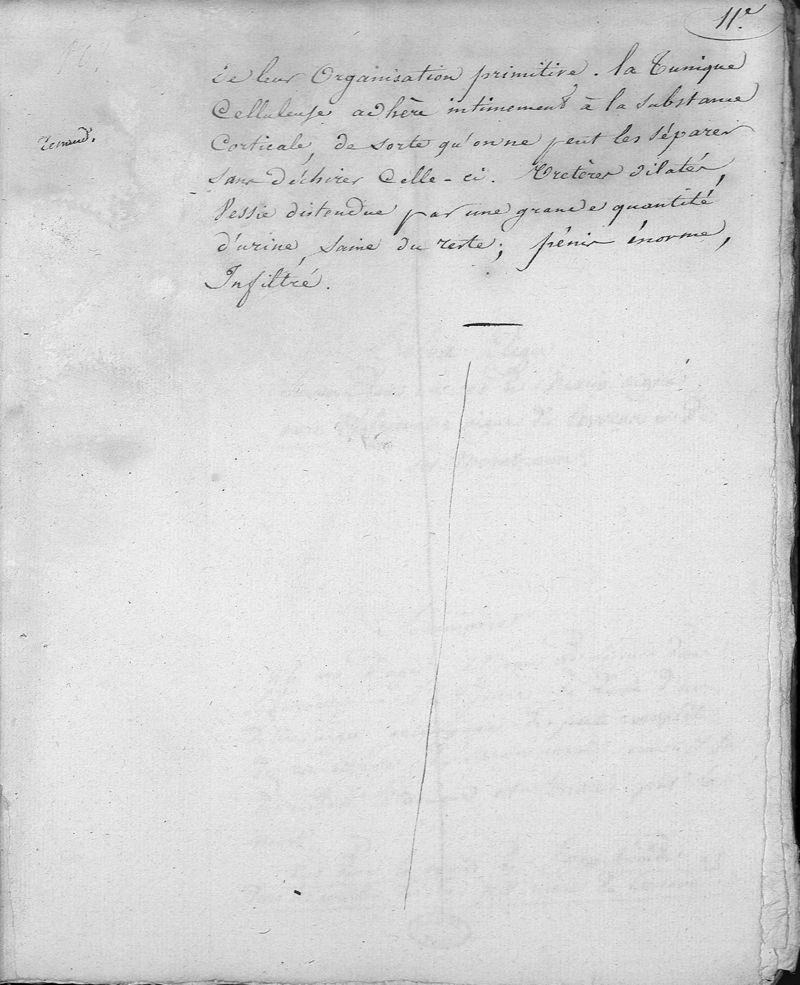 11e.
de leur Organisation primitive. la Tunique
Celluleuse adhère intimement à la substance
Corticale, de sorte qu'on ne peut les séparer
sans déchirer Celle-ci. Uretères dilatés,
Vessie distendue par une grande quantité
d'urine, saine du reste; pénis énorme,
Infiltré.